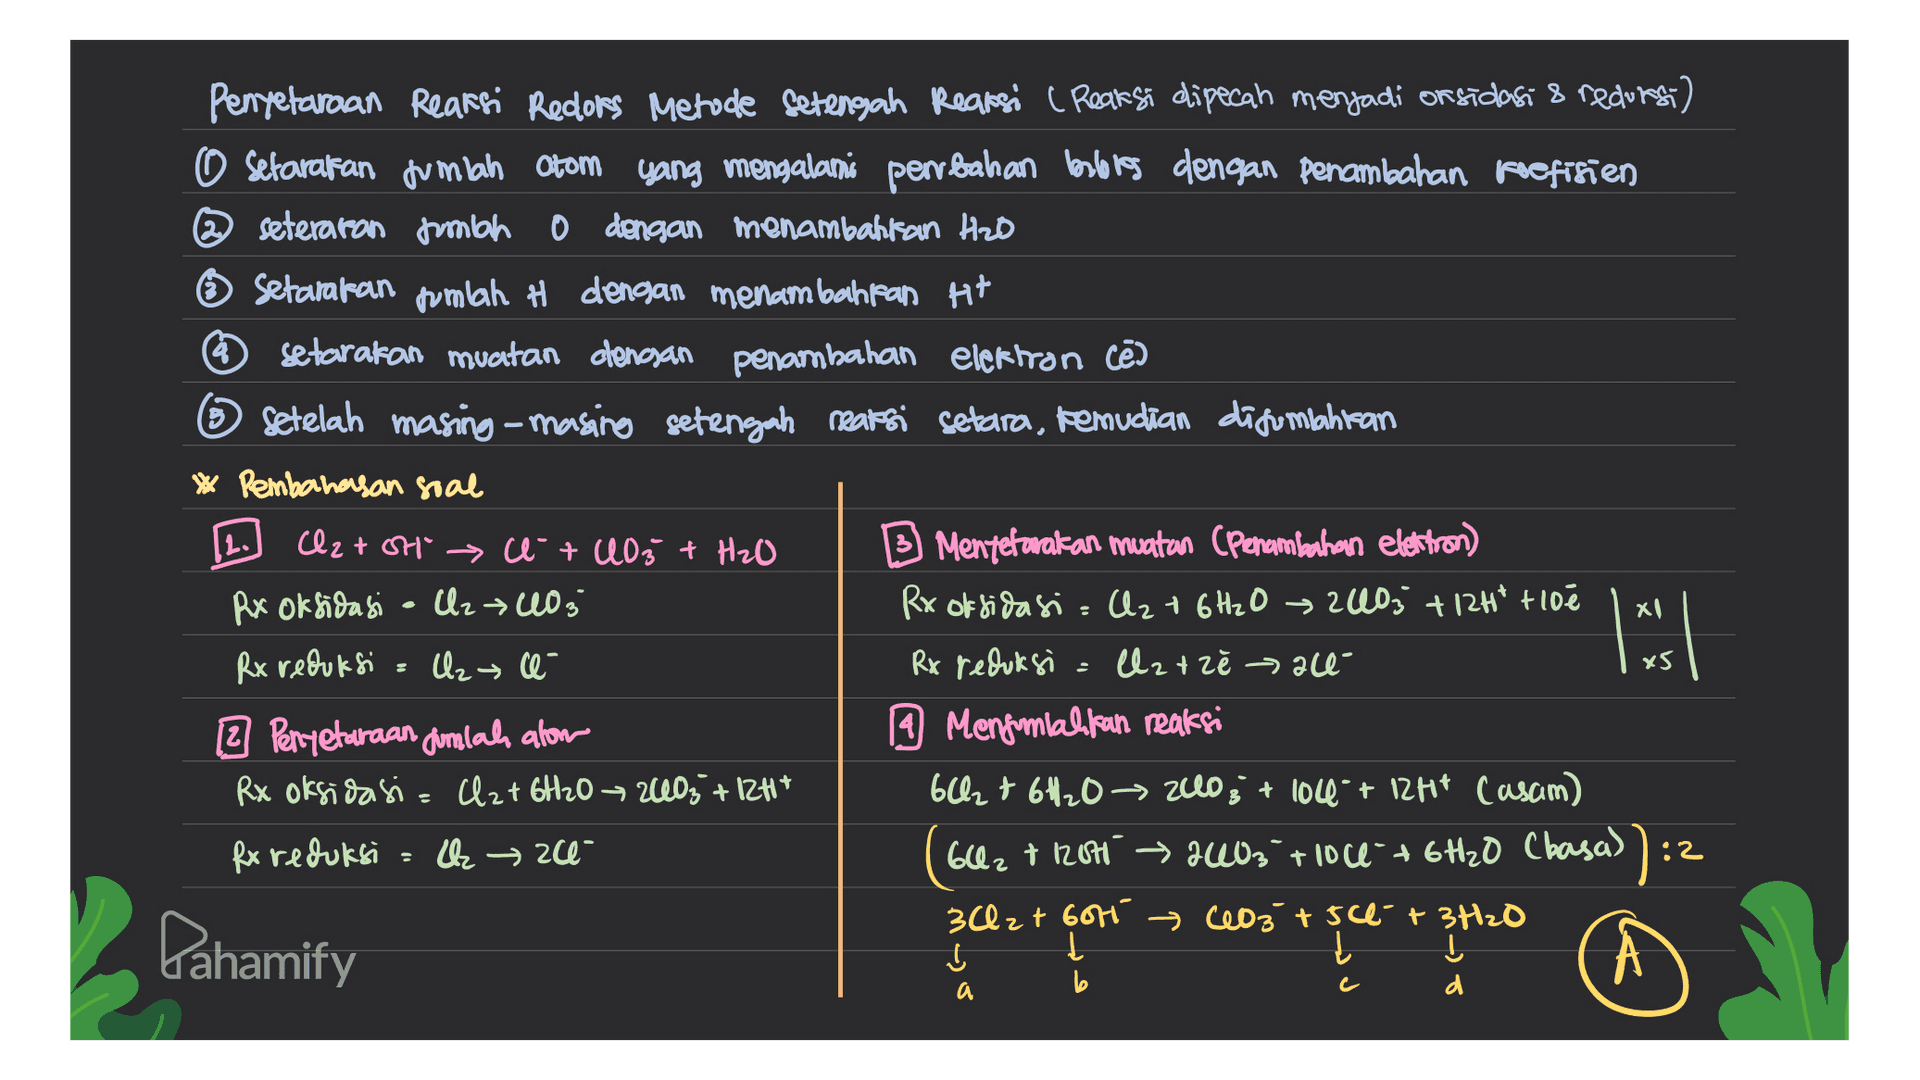 Penyetaraan Reaksi Redoks Metode Setengah Reaksi (Reaksi dipecah menjadi oksidasi & reduksi)
① Setarakan jumlah atom yang mengalami perubahan biloks dengan Penambahan koefisien
② seterakan jumlah O dengan menambahkan H₂O
③ Setarakan jumlah H dengan menambahkan H⁺
④ setarakan muatan dengan penambahan elektron (ē)
⑤ Setelah masing-masing setengah reaksi setara, kemudian dijumlahkan
* Pembahasan soal
1. Cl₂ + OH⁻ → Cl⁻ + ClO₃⁻ + H₂O
Rx oksidasi = Cl₂ → ClO₃⁻
Rx reduksi = Cl₂ → Cl⁻
2 Penyetaraan jumlah atom
Rx oksidasi = Cl₂ + 6H₂O → 2ClO₃⁻ + 12H⁺
Rx reduksi = Cl₂ → 2Cl⁻
3 Menyetarakan muatan (Penambahan elektron)
Rx oksidasi = Cl₂ + 6H₂O → 2ClO₃⁻ + 12H⁺ + 10ē | x1 |
Rx reduksi = Cl₂ + 2ē → 2Cl⁻ | x5 |
4 Menjumlahkan reaksi
6Cl₂ + 6H₂O → 2ClO₃⁻ + 10Cl⁻ + 12H⁺ (asam)
(6Cl₂ + 12OH⁻ → 2ClO₃⁻ + 10Cl⁻ + 6H₂O (basa)) :2
3Cl₂ + 6OH⁻ → ClO₃⁻ + 5Cl⁻ + 3H₂O
a b c d
A
Pahamify